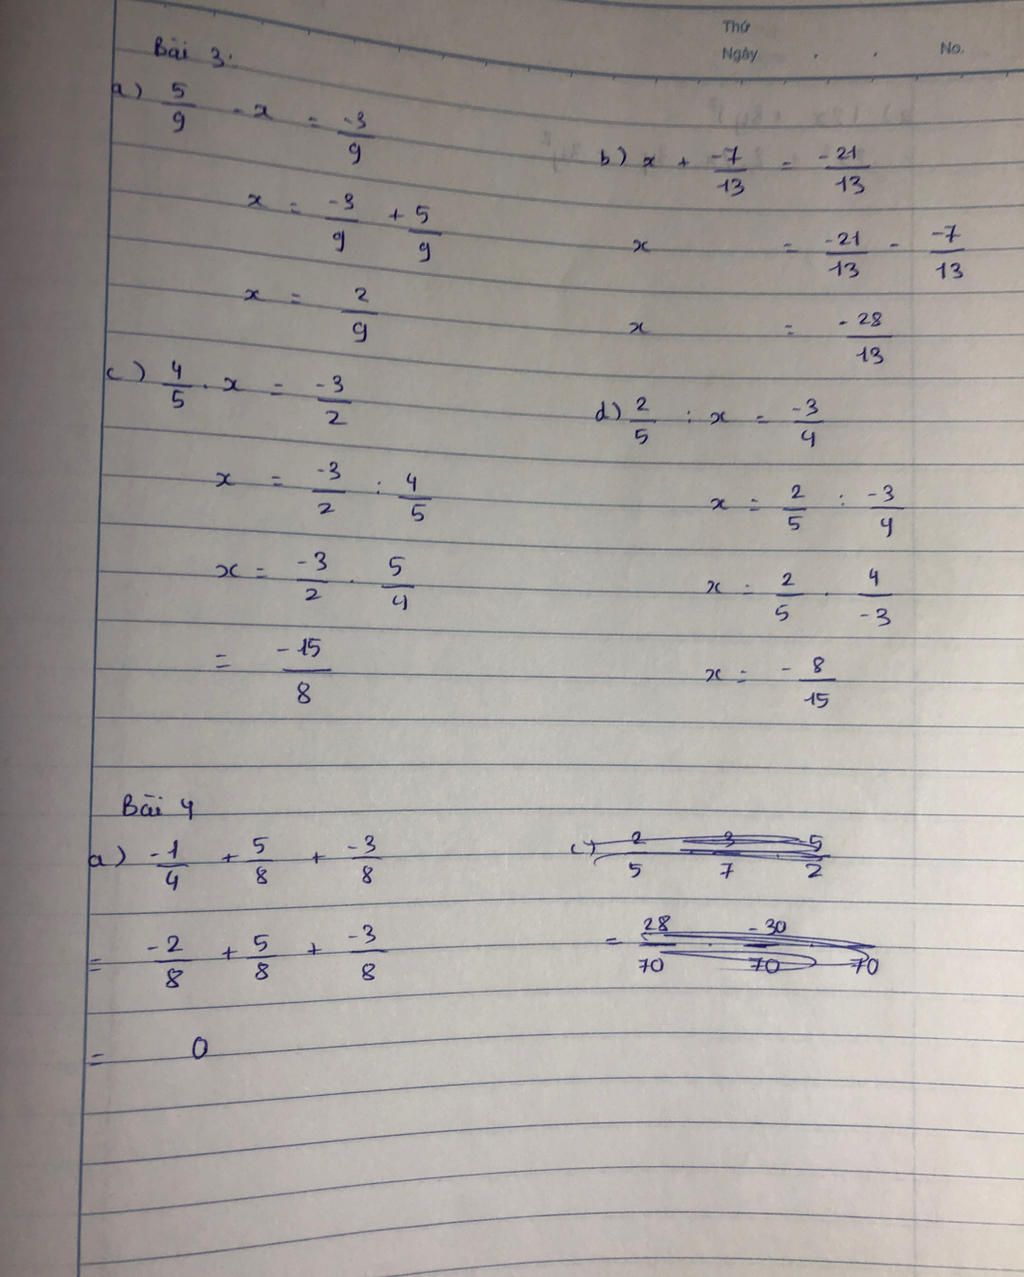 Thứ
Ngày . . No.
Bài 3:
a) 5/9 - x = -3/9
x = -3/9 + 5/9
x = 2/9
b) x + -7/13 = -21/13
x = -21/13 - -7/13
x = -28/13
c) 4/5 . x = -3/2
x = -3/2 : 4/5
x = -3/2 . 5/4
= -15/8
d) 2/5 : x = -3/4
x = 2/5 : -3/4
x = 2/5 . 4/-3
x = - 8/15
Bài 4
a) -1/4 + 5/8 + -3/8
= -2/8 + 5/8 + -3/8
= 0